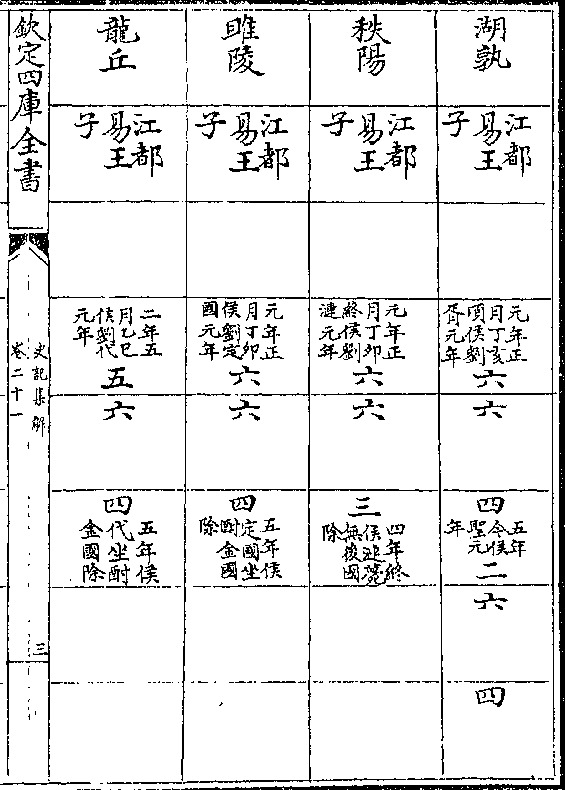 湖孰
江都
易王
子
元年正
月丁亥
頃侯劉
胥元年
六
六
四
五年
今侯
聖元
年
二
六
四
秩陽
江都
易王
子
元年正
月丁卯
終侯劉
漣元年
六
六
三
四年終
侯漣薨
無後國
除
睢陵
江都
易王
子
元年正
月丁卯
侯劉定
國元年
六
六
四
五年侯
定國坐
酎金國
除
龍丘
江都
易王
子
二年五
月乙巳
侯劉代
元年
五
六
四
五年侯
代坐酎
金國除
欽定四庫全書
史記集解
卷二十一
三